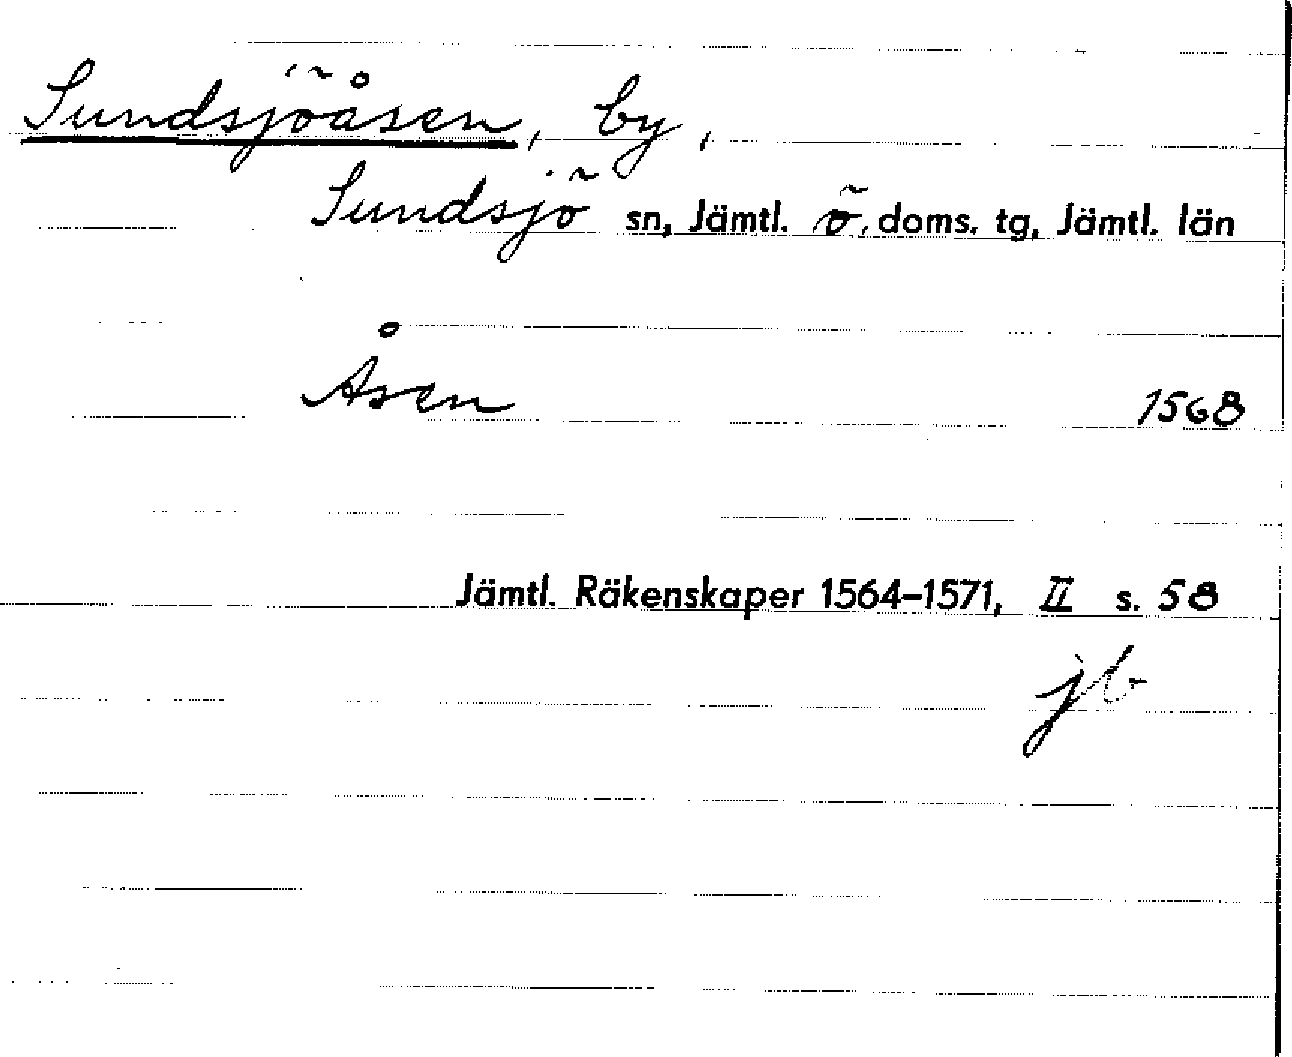 Sundsjöåsen, by,
Sundsjö sn, Jämtl. ö. doms. tg, Jämtl. län
Åsen 1568
Jämtl. Räkenskaper 1564–1571, II s. 58
jb